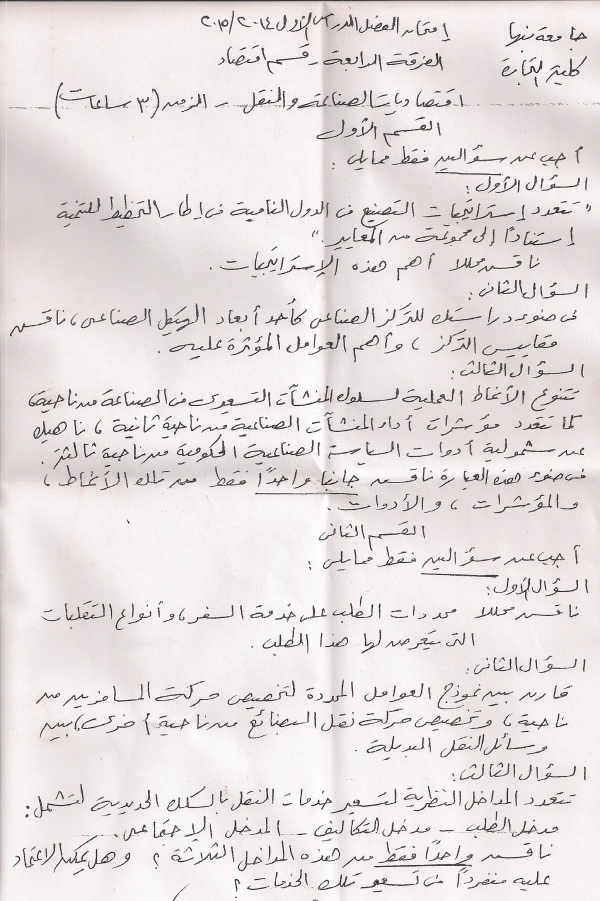 جامعة بنها
كلية التجارة
إمتحان الفصل الدراسى الأول ٢٠١٤/٢٠١٥
الفرقة الرابعة - قسم اقتصاد
اقتصاديات الصناعة والنقل - الزمن (٣ ساعات)
القسم الأول
أجب عن سؤالين فقط ممايلى :
السؤال الأول :
" تتعدد إستراتيجيات التصنيع فى الدول النامية فى إطار التخطيط للتنمية
إستنادًا إلى مجموعة من المعايير . "
ناقش محللا أهم هذه الإستراتيجيات .
السؤال الثانى :
فى ضوء دراستك للتركز الصناعى كأحد أبعاد الهيكل الصناعى ، ناقش
مقاييس التركز ، وأهم العوامل المؤثرة عليه .
السؤال الثالث :
تتنوع الأنماط العملية لسلوك المنشآت التسعيرى فى الصناعة من ناحية ،
كما تتعدد مؤشرات أداء المنشآت الصناعية من ناحية ثانية ، ناهيك
عن شمولية أدوات السياسة الصناعية الحكومية من ناحية ثالثة .
فى ضوء هذه العبارة ناقش جانبا واحدًا فقط من تلك الأنماط ،
والمؤشرات ، والأدوات .
القسم الثانى
أجب عن سؤالين فقط ممايلى :
السؤال الأول :
ناقش محللا محددات الطلب على خدمة السفر ، وأنواع التقلبات
التى يتعرض لها هذا الطلب .
السؤال الثانى :
قارن بين نموذج العوامل المحددة لتخصيص حركة المسافرين من
ناحية ، وتخصيص حركة نقل البضائع من ناحية أخرى ، بين
وسائل النقل البديلة .
السؤال الثالث :
تتعدد المداخل النظرية لتسعير خدمات النقل بالسكك الحديدية لتشمل :
مدخل الطلب - مدخل التكاليف - المدخل الإجتماعى .
ناقش واحدًا فقط من هذه المداخل الثلاثة ؟ وهل يمكن الاعتماد
عليه منفردًا فى تسعير تلك الخدمات ؟